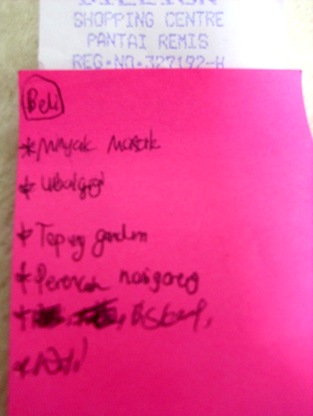 SHOPPING CENTRE
PANTAI REMIS
REG.NO.327192-H
Beli
* Minyak Masak
* Ubat gigi
* Tepung gandum
* Perencah nasi goreng
*
*